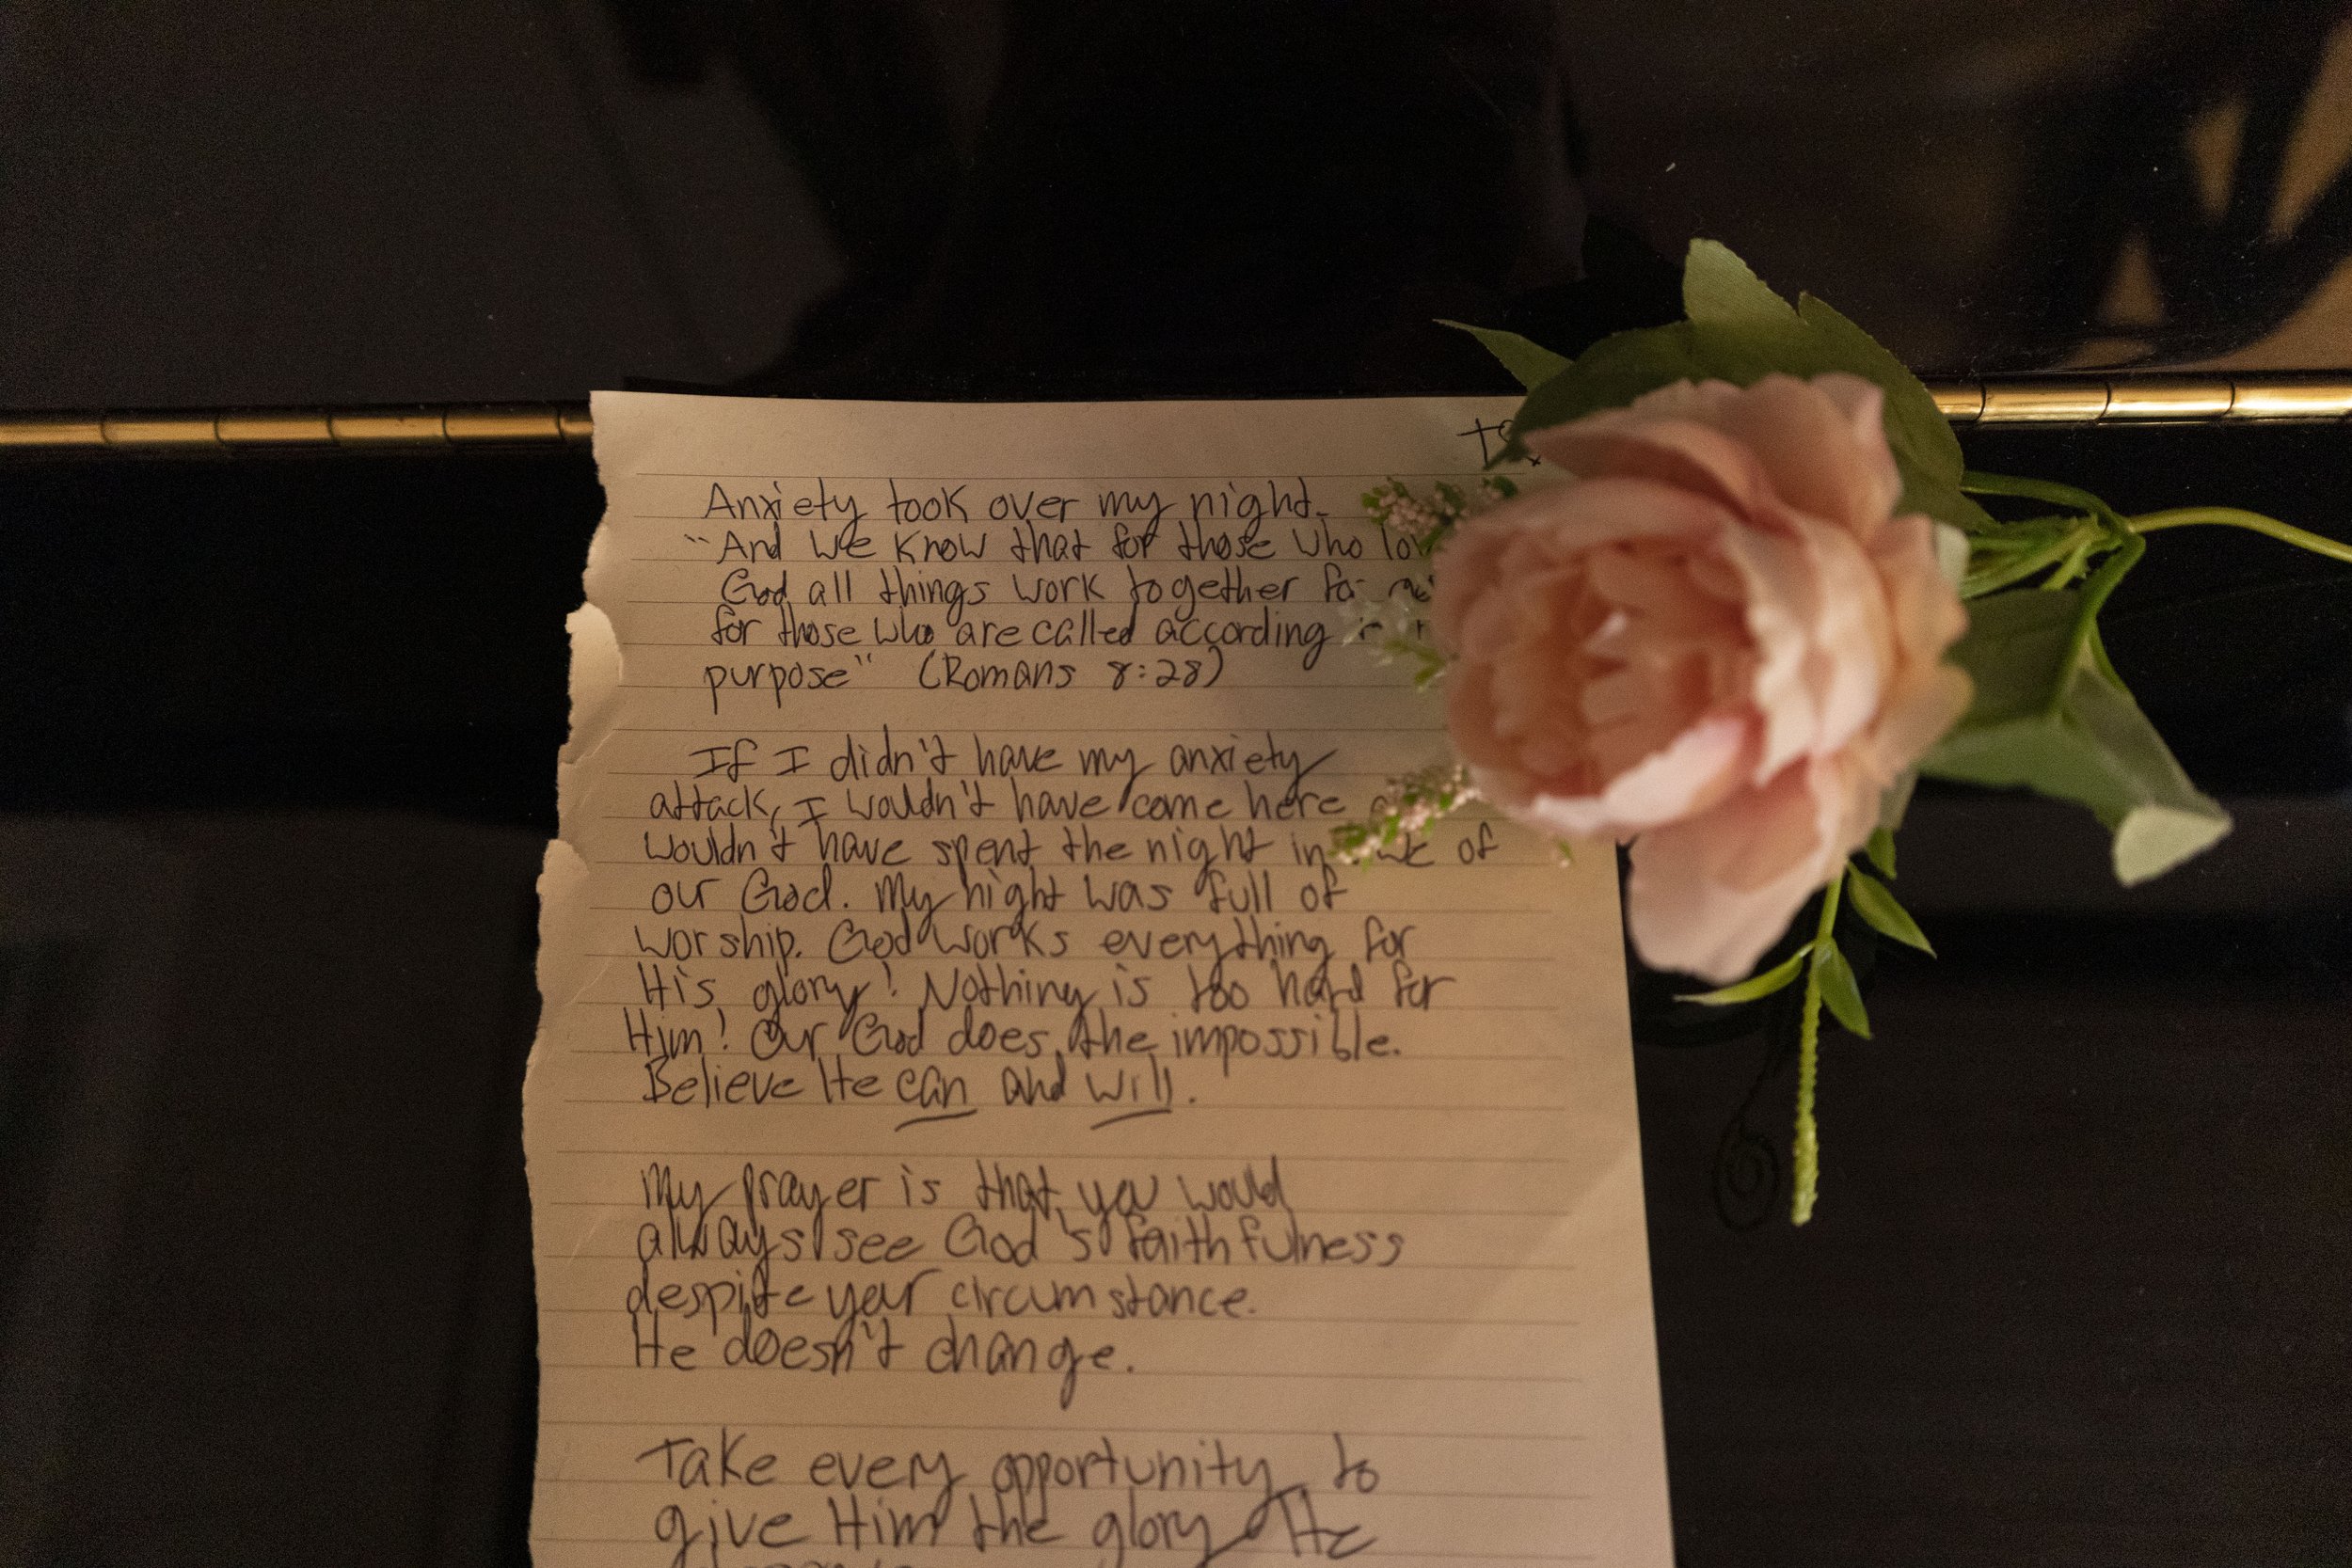 Anxiety took over my night.
"And we know that for those who
God all things work together
for those who are called according
purpose" (Romans 8:28)
If I didn't have my anxiety
attack, I wouldn't have come here
wouldn't have spent the night in of
our God. My night was full of
worship. God works everything for
His glory! Nothing is too hard for
Him! Our God does the impossible.
Believe He can and will.
My prayer is that you would
always see God's faithfulness
despite your circumstance.
He doesn't change.
Take every opportunity to
give Him the glory He